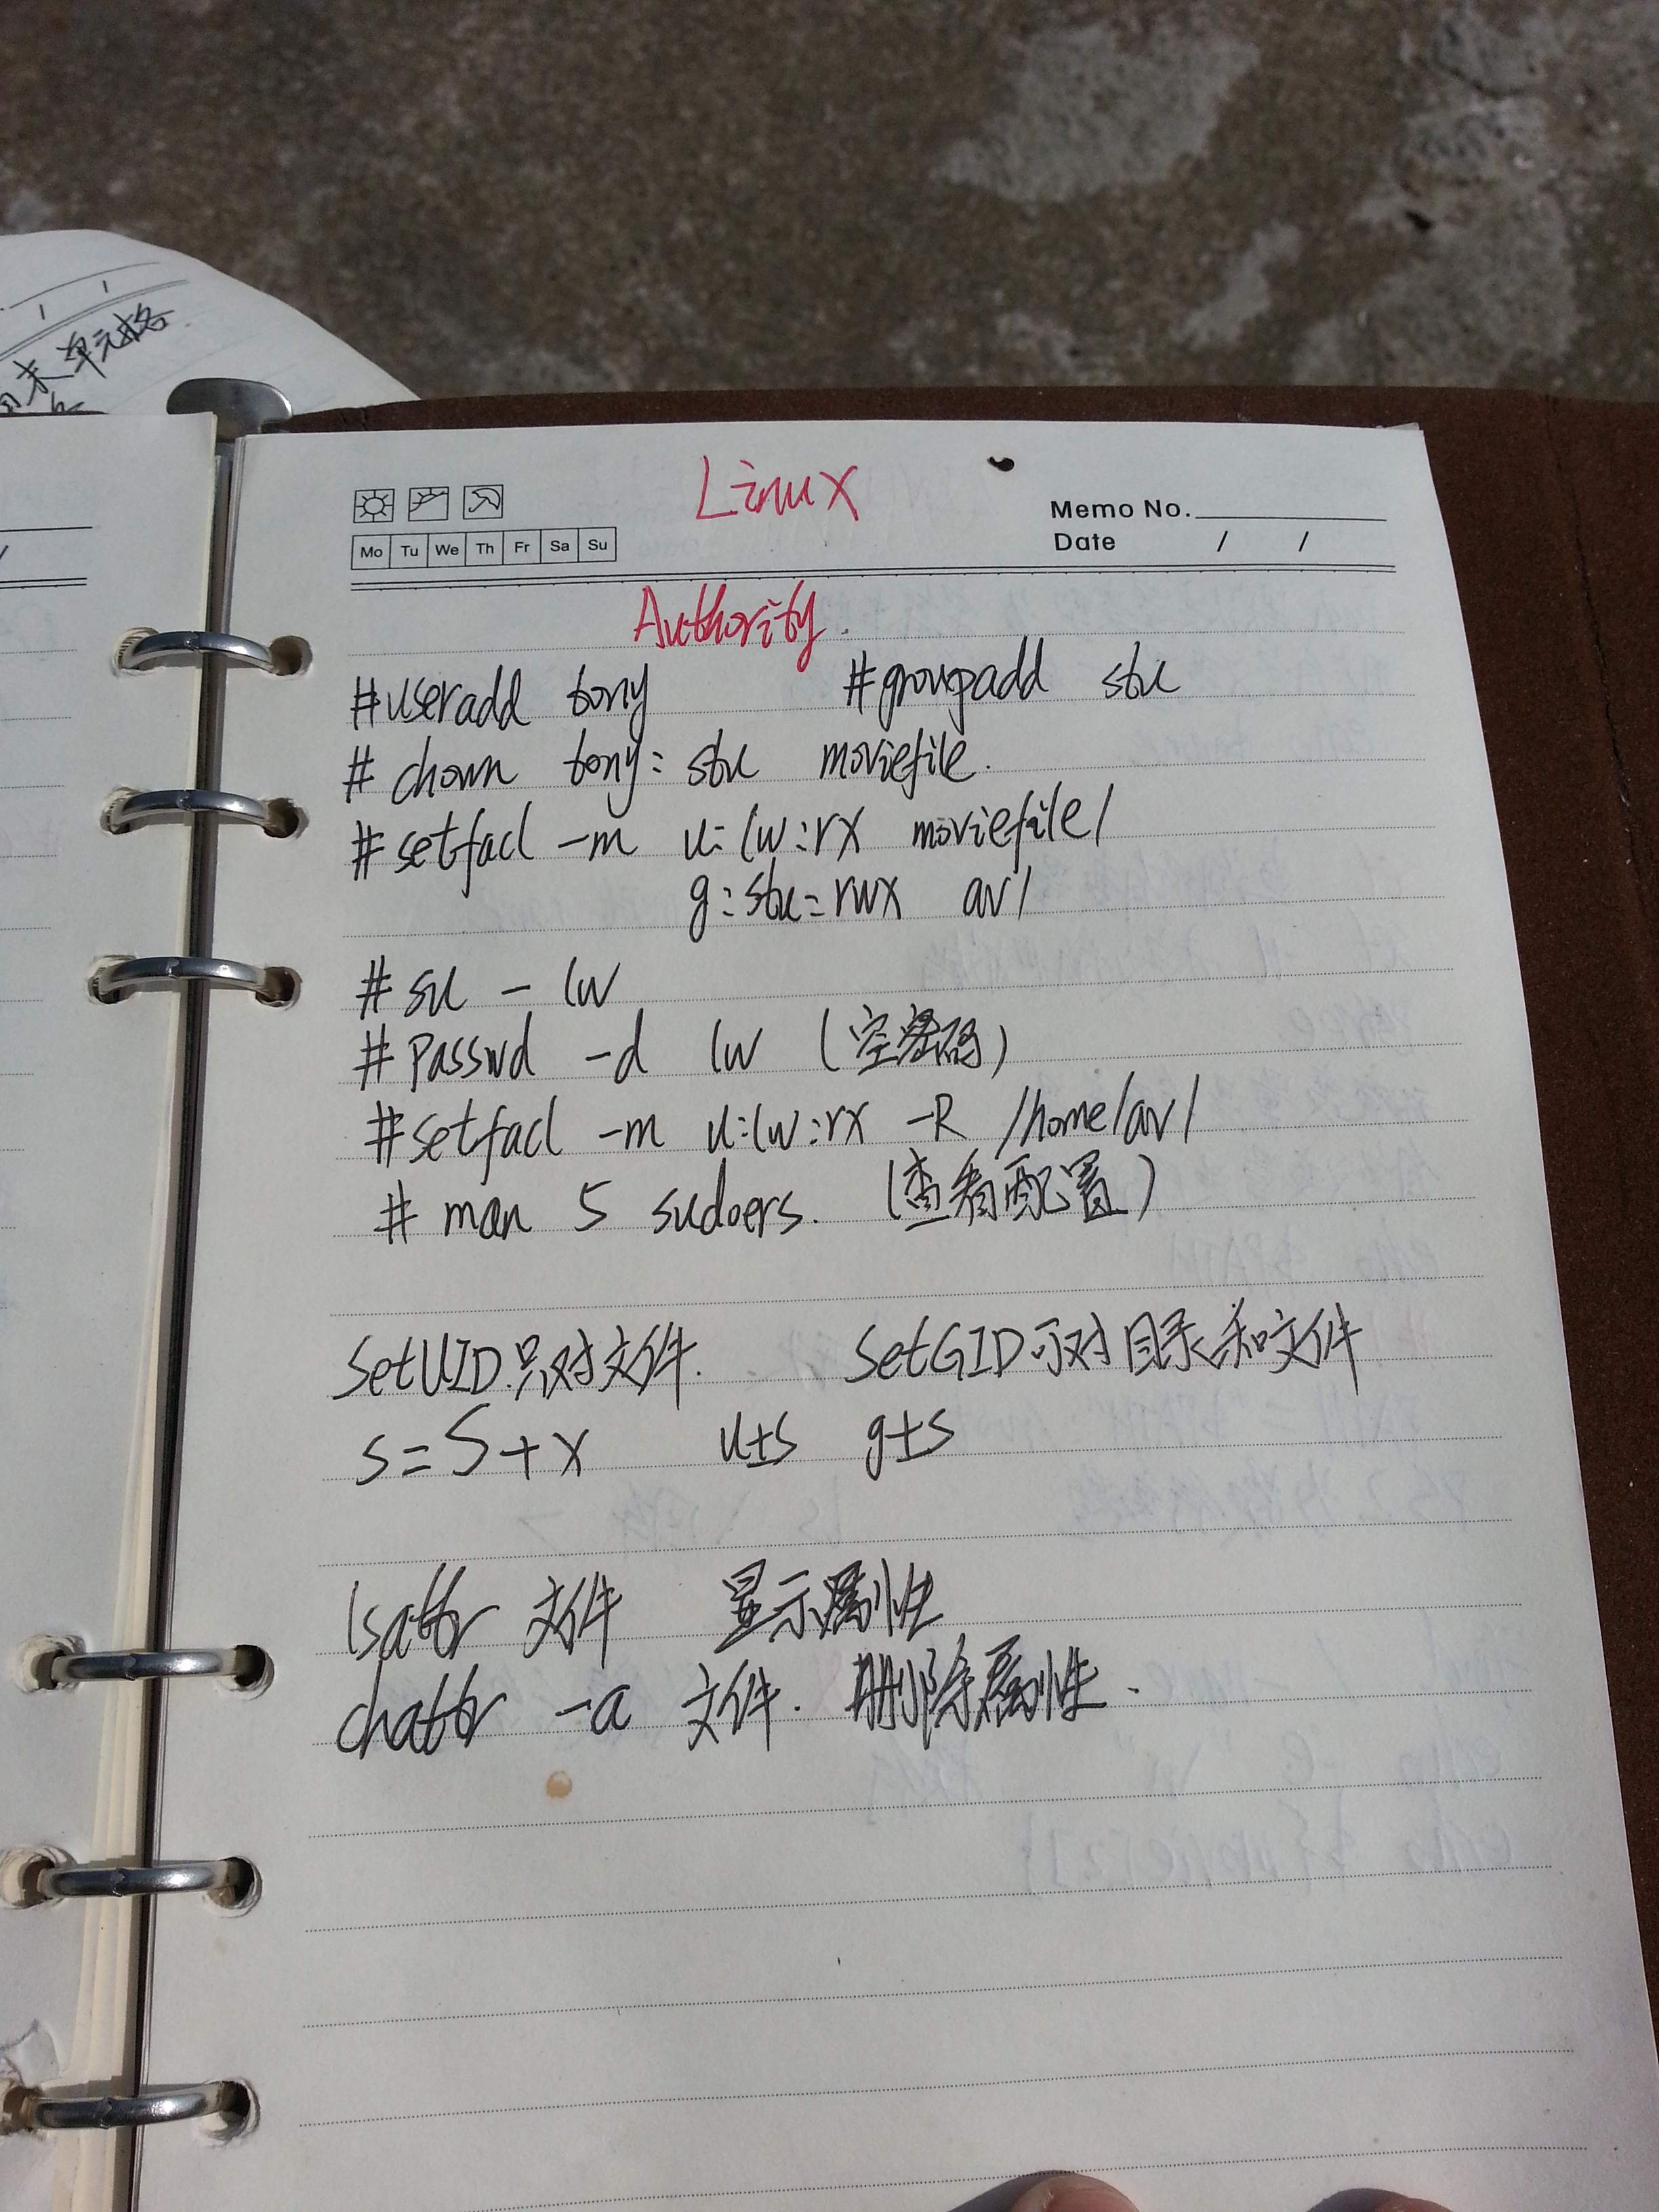 末单元格
Linux
Memo No.
Mo Tu We Th Fr Sa Su
Date / /
Authority.
#useradd tony #groupadd stu
# chown tony: stu moviefile.
#setfacl -m u:lw:rx moviefile/
g:stu:rwx av/
# su - lw
# Passwd -d lw (空密码)
#setfacl -m u:lw:rx -R /home/av/
# man 5 sudoers. (查看配置)
SetUID只对文件. SetGID可对目录和文件
s=S+x u±s g±s
lsattr 文件 显示属性
chattr -a 文件. 删除属性.